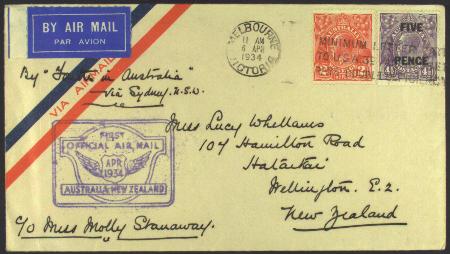 BY AIR MAIL
PAR AVION
VIA AIRMAIL
MELBOURNE
11 AM
6 APR
1934
VICTORIA
MINIMUM
FIVE
PENCE
By "Faith in Australia"
via Sydney, N.S.W.
FIRST
OFFICIAL AIR MAIL
APR
1934
AUSTRALIA-NEW ZEALAND
Miss Lucy Whellams
104 Hamilton Road
Hataitai
Wellington. E.2.
New Zealand
C/o Miss Molly Stanaway.